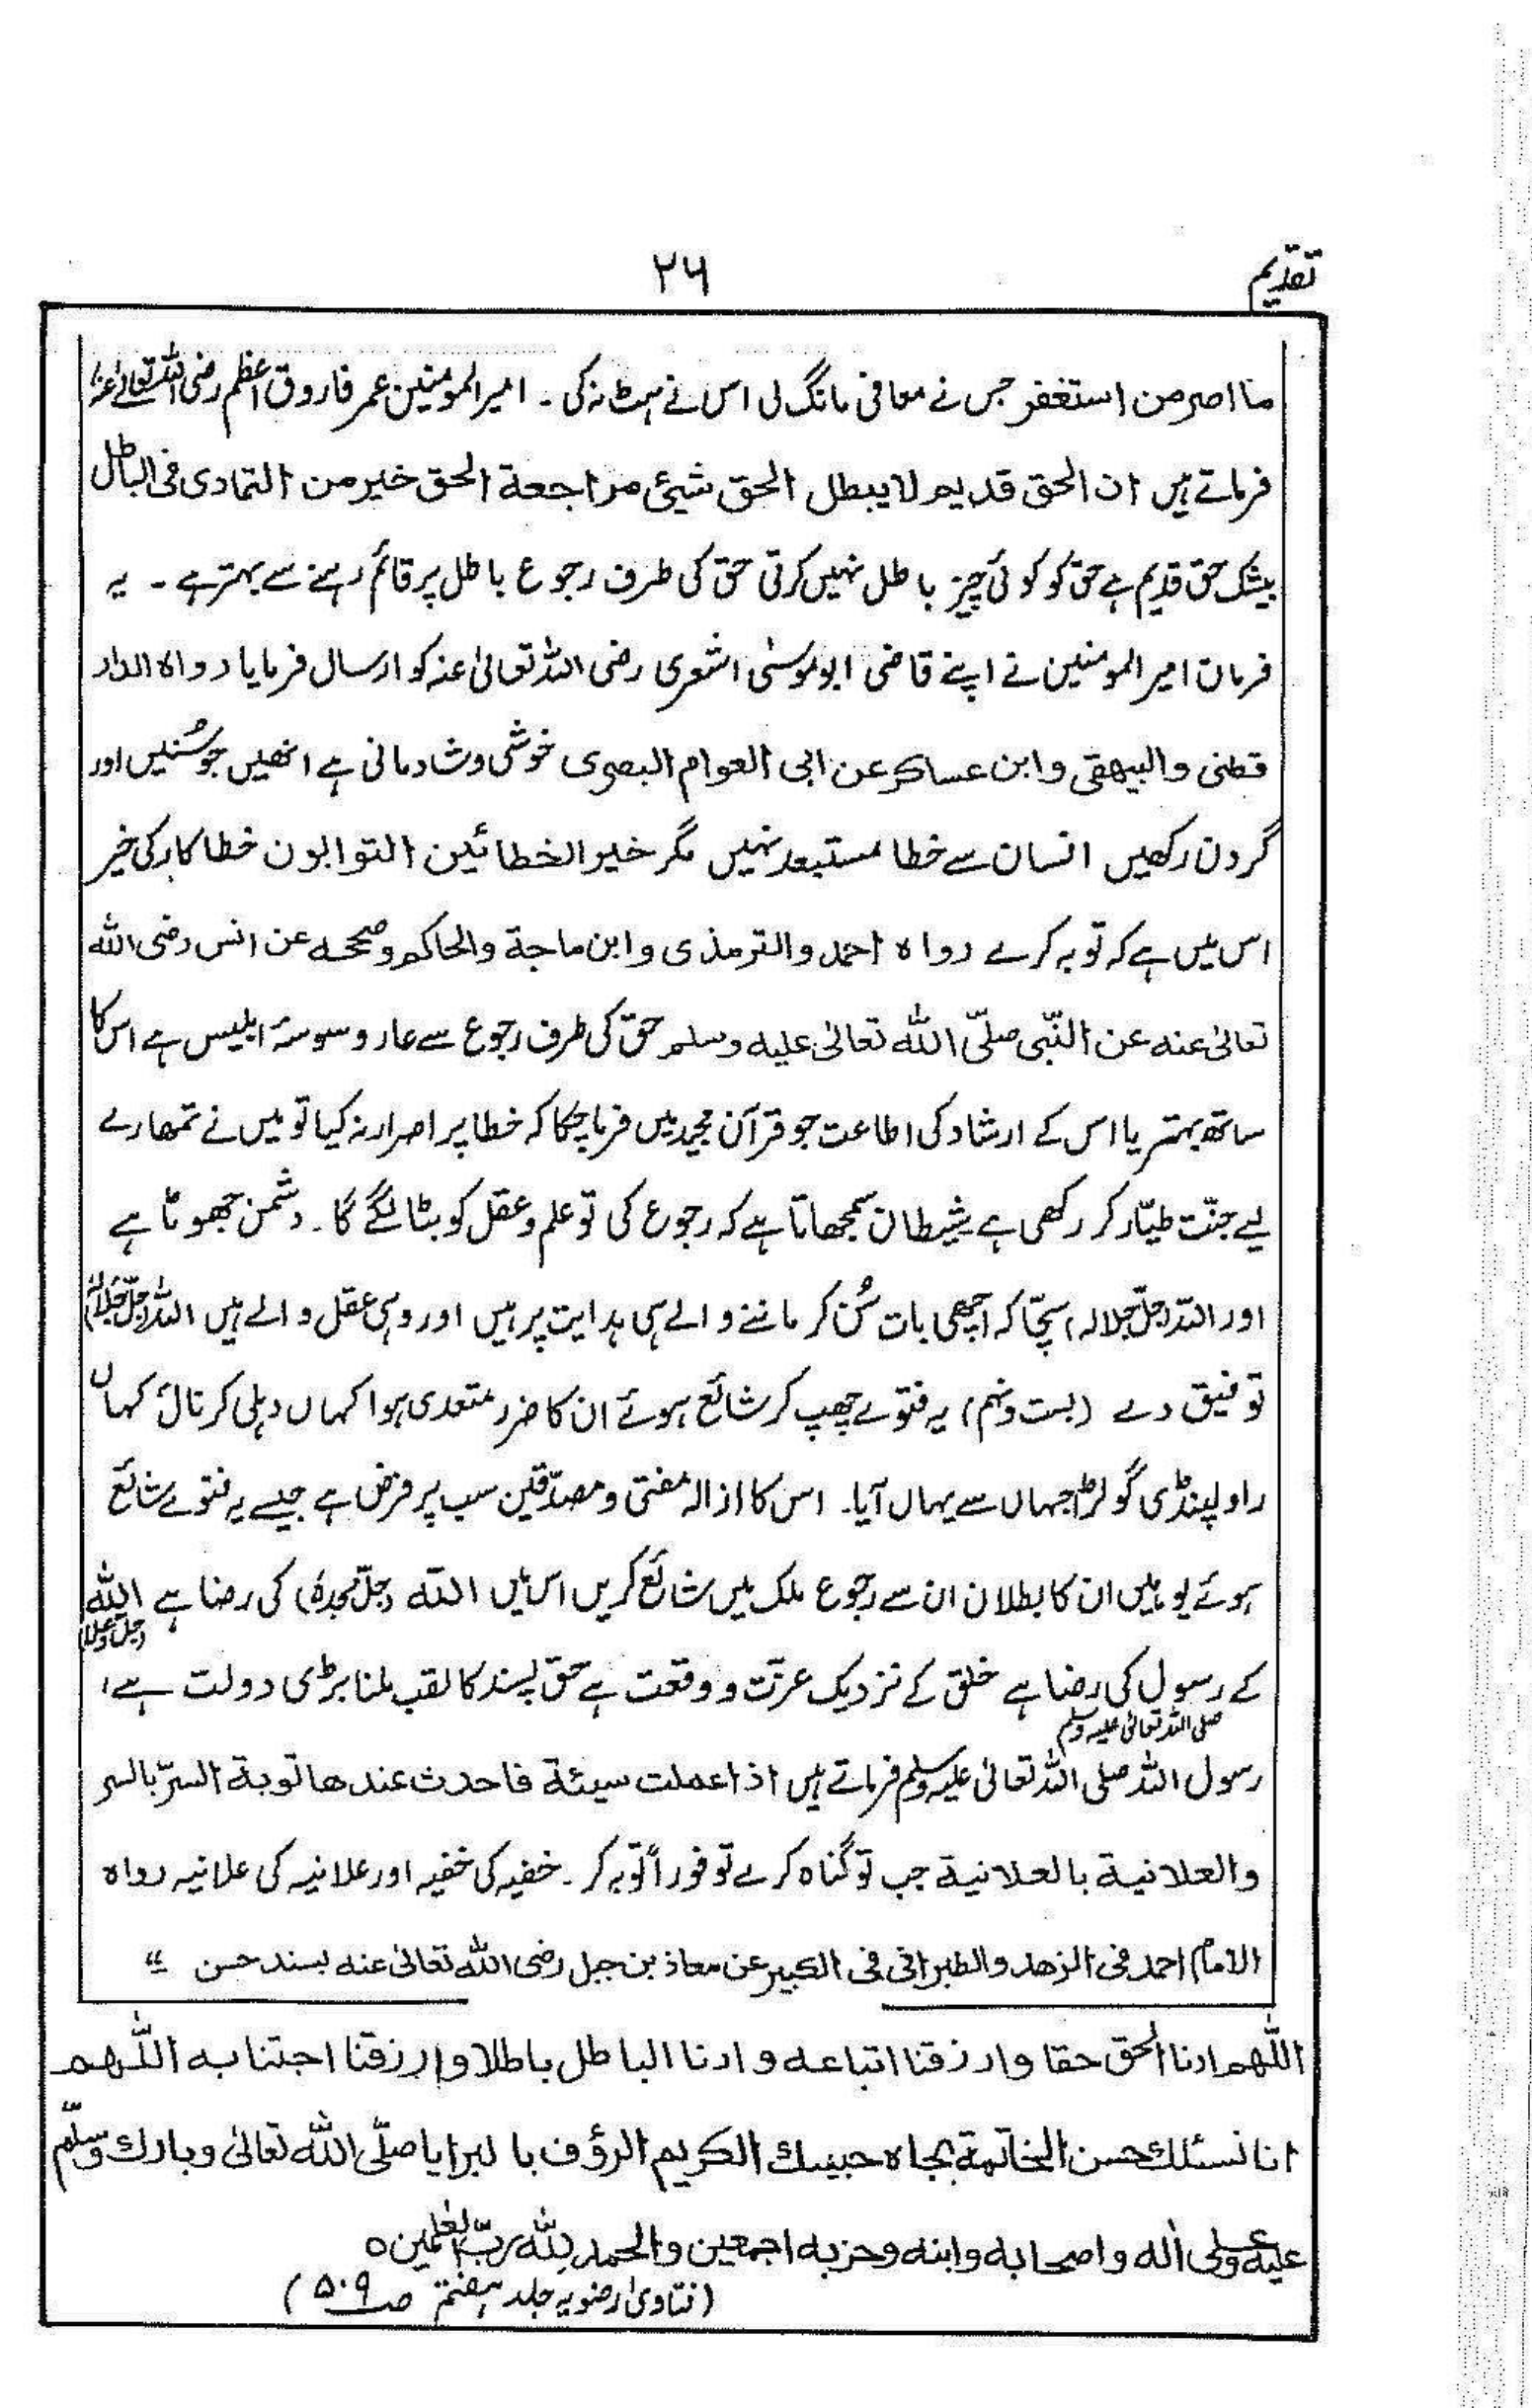 تقدیم
۲۶
ما اصر من استغفر جس نے معافی مانگ لی اس نے ہٹ نہ کی ۔ امیرالمومنین عمر فاروق اعظم رضی اللہ تعالیٰ عنہ
فرماتے ہیں ان الحق قدیم لا یبطل الحق شیئ مراجعة الحق خیر من التمادی فی الباطل
بیشک حق قدیم ہے حق کو کوئی چیز باطل نہیں کرتی حق کی طرف رجوع باطل پر قائم رہنے سے بہتر ہے ۔ یہ
فرمان امیر المومنین نے اپنے قاضی ابو موسیٰ اشعری رضی اللہ تعالیٰ عنہ کو ارسال فرمایا رواہ الدار
قطنی والبیھقی وابن عساکر عن ابی العوام البصری خوشی وشادمانی ہے انھیں جو سُنیں اور
گردن رکھیں انسان سے خطا مستبعد نہیں مگر خیر الخطائین التوابون خطا کار کی خیر
اس میں ہے کہ توبہ کرے رواہ احمد والترمذی وابن ماجة والحاکم وصححہ عن انس رضی اللہ
تعالیٰ عنہ عن النّبی صلّی اللہ تعالیٰ علیہ وسلم حق کی طرف رجوع سے عار وسوسۂ ابلیس ہے اس کا
ساتھ بہتر یا اس کے ارشاد کی اطاعت جو قرآن مجید میں فرما چکا کہ خطا پر اصرار نہ کیا تو میں نے تمھارے
لیے جنّت طیّار کر رکھی ہے شیطان سمجھاتا ہے کہ رجوع کی تو علم وعقل کو بٹا لگے گا ۔ دشمن جھوٹا ہے
اور اللہ (جلّ جلالہ) سچّا کہ اچھی بات سُن کر ماننے والے ہی ہدایت پر ہیں اور وہی عقل والے ہیں اللہ (جلّ جلالہ)
توفیق دے (بست ونہم) یہ فتوے چھپ کر شائع ہوئے ان کا ضرر متعدی ہوا کہاں دہلی کرنال کہاں
راولپنڈی گولڑا جہاں سے یہاں آیا۔ اس کا ازالہ مفتی ومصدّقین سب پر فرض ہے جیسے یہ فتوے شائع
ہوئے یوہیں ان کا بطلان ان سے رجوع ملک میں شائع کریں اس میں اللہ (جلّ مجدہٗ) کی رضا ہے اللہ
(جل وعلا)
کے رسول کی رضا ہے خلق کے نزدیک عزّت ووقعت ہے حق پسند کا لقب ملنا بڑی دولت ہے،
صلی اللہ تعالیٰ علیہ وسلم
رسول اللہ صلی اللہ تعالیٰ علیہ وسلم فرماتے ہیں اذا عملت سیئة فاحدث عندھا توبة السرّ بالسر
والعلانیة بالعلانیة جب تو گناہ کرے تو فوراً توبہ کر ۔ خفیہ کی خفیہ اور علانیہ کی علانیہ رواہ
الامام احمد فی الزھد والطبرانی فی الکبیر عن معاذ بن جبل رضی اللہ تعالیٰ عنہ بسند حسن "
اللّٰھم ارنا الحق حقا وارزقنا اتباعہ وارنا الباطل باطلا وارزقنا اجتنابہ اللّٰھم
انا نسئلك حسن الخاتمة بجاہ حبیبك الکریم الرؤف بالبرایا صلّی اللہ تعالیٰ وبارك وسلّم
علیہ وعلی اٰلہ واصحابہ وابنہ وحزبہ اجمعین والحمد للہ ربّ العٰلمین ہ
(فتاویٰ رضویہ جلد ہفتم ص ۵۰۹)